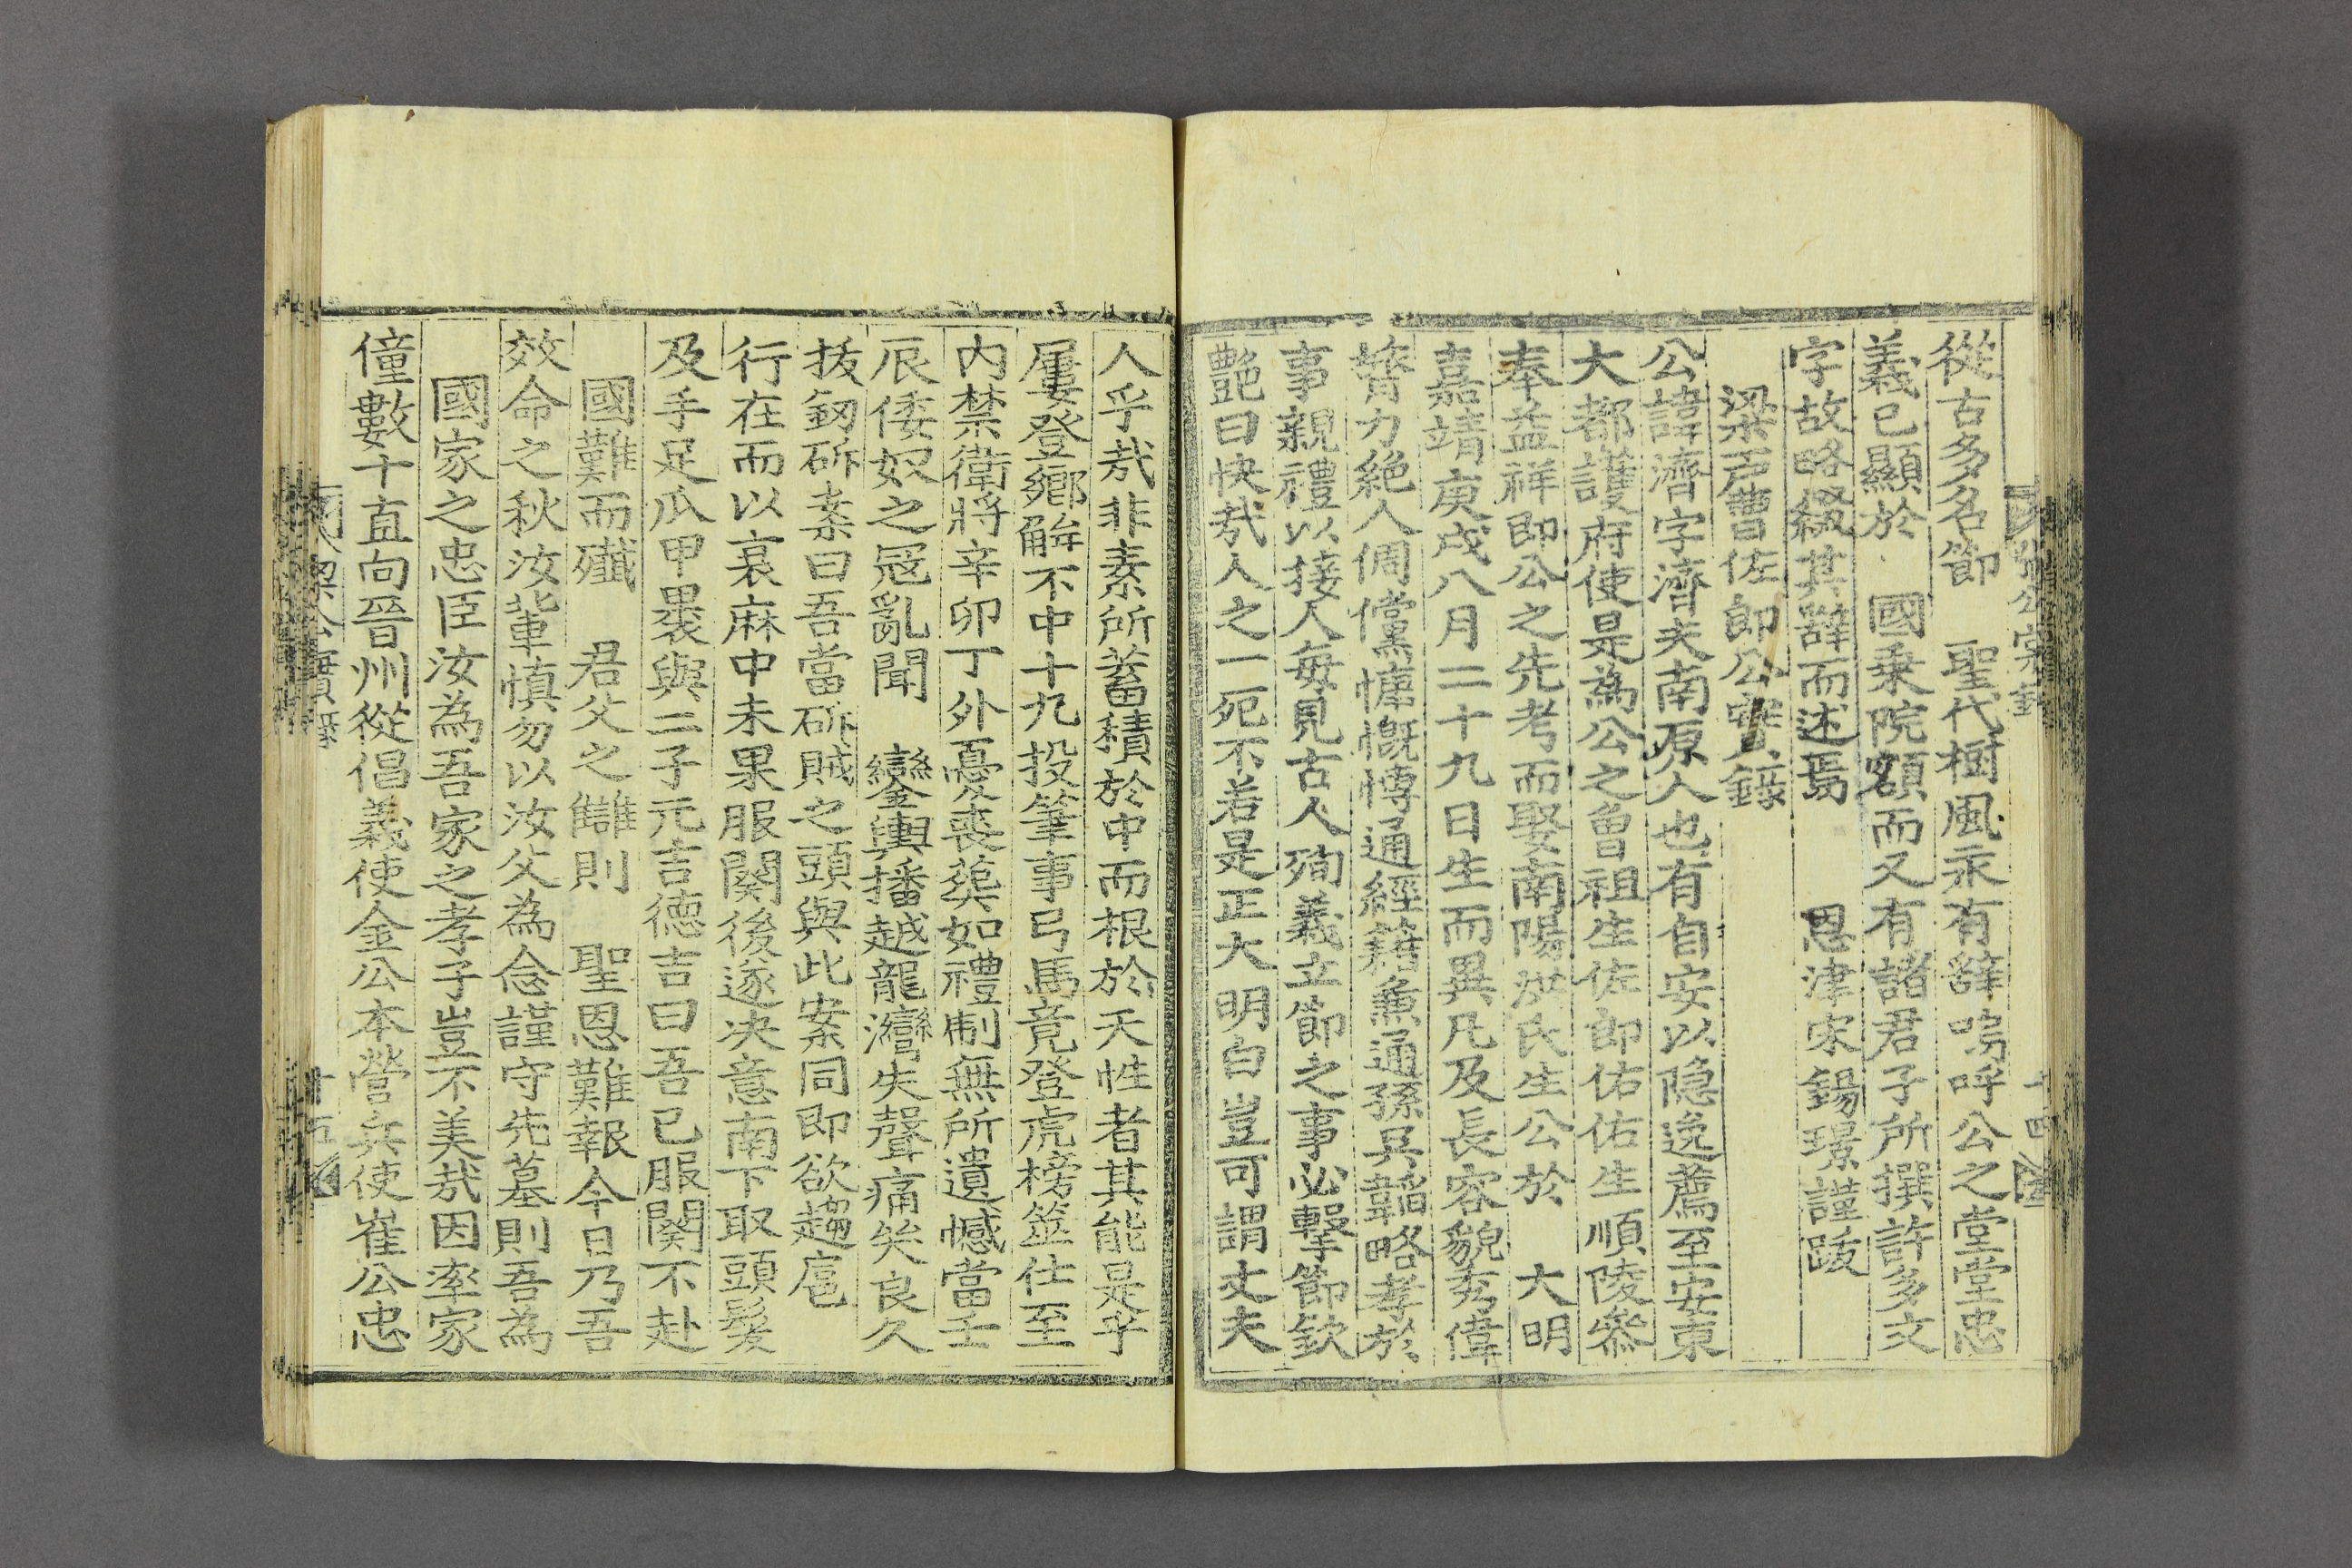 從古多名節 聖代樹風永有辭嗚呼公之堂堂忠
義已顯於 國乗院額而又有諸君子所撰許多文
字故略綴其辭而述焉 恩津宋錫璟謹跋
梁戸曹佐郎公實錄
公諱濟字濟夫南原人也有自安以隐逸薦至安東
大都護府使是為公之曾祖生佐郎佑佑生順陵參
奉益祥即公之先考而娶南陽洪氏生公於 大明
嘉靖庚戌八月二十九日生而異凡及長容貌秀偉
膂力絶人倜儻慷慨博通經籍兼通孫吳韜略孝於
事親禮以接人每見古人殉義立節之事必擊節欽
艷曰快哉人之一死不若是正大明白豈可謂丈夫
人乎哉非素所蓄積於中而根於天性者其能是乎
屢登鄉解不中十九投筆事弓馬竟登虎榜筮仕至
内禁衛將辛卯丁外憂喪葬如禮制無所遺憾當壬
辰倭奴之冦亂聞 鑾輿播越龍灣失聲痛哭良久
拔釼斫案曰吾當斫賊之頭與此案同即欲趨扈
行在而以衰麻中未果服闋後遂决意南下取頭髮
及手足瓜甲褁與二子元吉德吉曰吾已服闋不赴
國難而殲 君父之讎則 聖恩難報今日乃吾
效命之秋汝輩慎勿以汝父為念謹守先墓則吾為
國家之忠臣汝為吾家之孝子豈不美哉因率家
僮數十直向晉州從倡義使金公本營兵使崔公忠
梁公實錄
十五